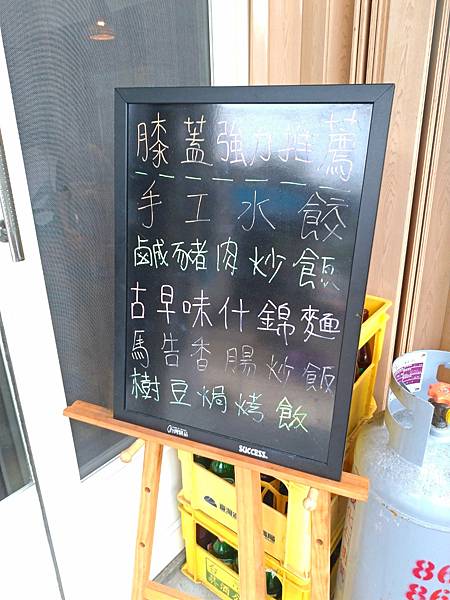 膝蓋強力推薦
手工水餃
鹹豬肉炒飯
古早味什錦麵
馬告香腸炒飯
樹豆焗烤飯
SUCCESS
86
86